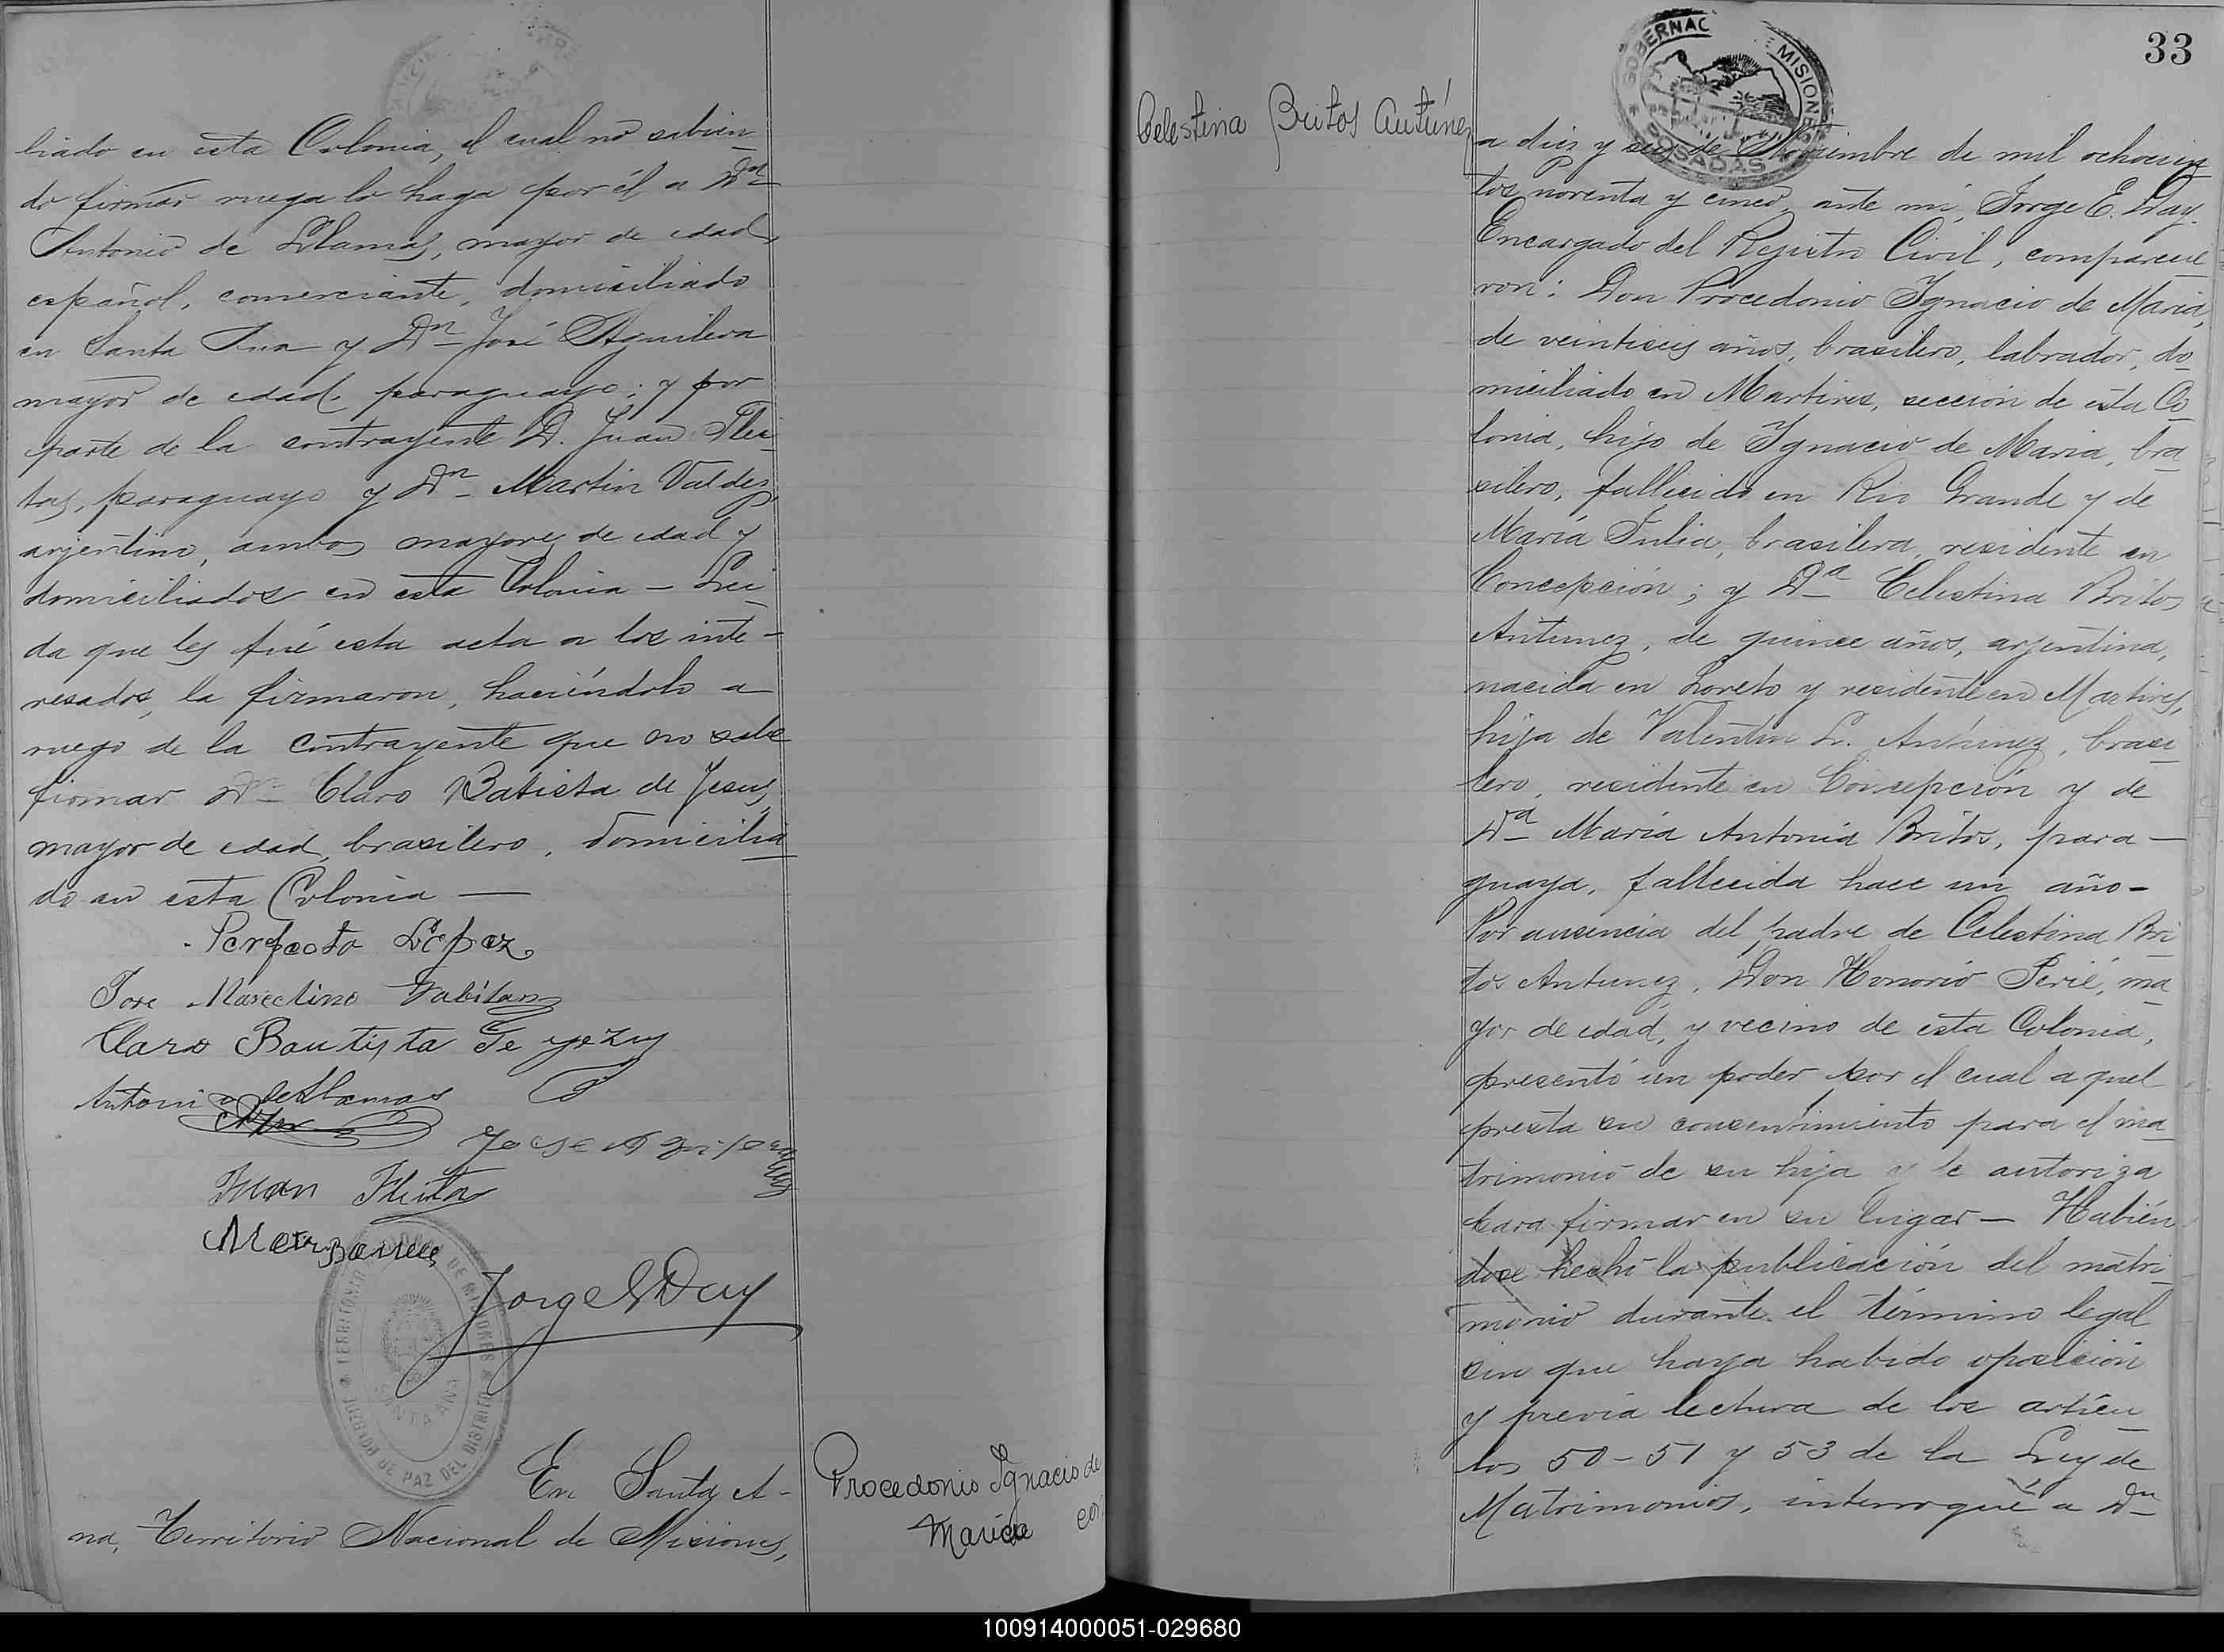 liado en esta Colonia, el cual no sabien
do firmar ruega lo haga por él a Dn
Antonio de Llamas, mayor de edad,
español, comerciante, domiciliado
en Santa Ana y Dn José Aguilera
mayor de edad, paraguayo; y por
parte de la contrayente D. Juan Flei
tas, paraguayo y Dn Martin Valdez,
arjentino, ambos mayores de edad y
domiciliados en esta Colonia — Lei
da que les fué esta acta a los inte-
resados, la firmaron, haciéndolo a
ruego de la contrayente que no sabe
firmar Dn Claro Batista de Jesus,
mayor de edad, brasilero, domicilia
do en esta Colonia —
Perfecto López
Jose Marcelino
Claro Bautista
Antonio de Llamas
Jose Aguilera
Juan Fleita
Jorge E Day
TERRITORIO DE MISIONES
JUZGADO DE PAZ DEL DISTRITO
SANTA ANA
En Santa A-
na, Territorio Nacional de Misiones,
Procedonio Ignacio de
Maria con
33
GOBERNAC MISIONES
POSADAS
Celestina Britos Antúnez
a diez y seis de Noviembre de mil ochocien
tos noventa y cinco, ante mi, Jorge E. Day,
Encargado del Rejistro Civil, comparecie
ron: Don Procedonio Ignacio de Maria,
de veintiseis años, brasilero, labrador, do
miciliado en Martires, sección de esta Co
lonia, hijo de Ignacio de Maria, bra
silero, fallecido en Rio Grande y de
María Julia, brasilera, residente en
Concepción; y Da Celestina Britos
Antunez, de quince años, arjentina,
nacida en Loreto y residente en Martires,
hija de Valentin L. Antúnez, brasi
lero, residente en Concepción y de
Da María Antonia Britos, para-
guaya, fallecida hace un año-
Por ausencia del padre de Celestina Bri
tos Antunez, Don Honorio Perié, ma
yor de edad, y vecino de esta Colonia,
presentó un poder por el cual aquel
presta su consentimiento para el ma
trimonio de su hija y le autoriza
para firmar en su lugar — Habién
dose hecho la publicación del matri
monio durante el término legal
sin que haya habido oposición
y previa lectura de los artícu
los 50-51 y 53 de la Ley de
Matrimonios, interrogué a Dn
100914000051-029680